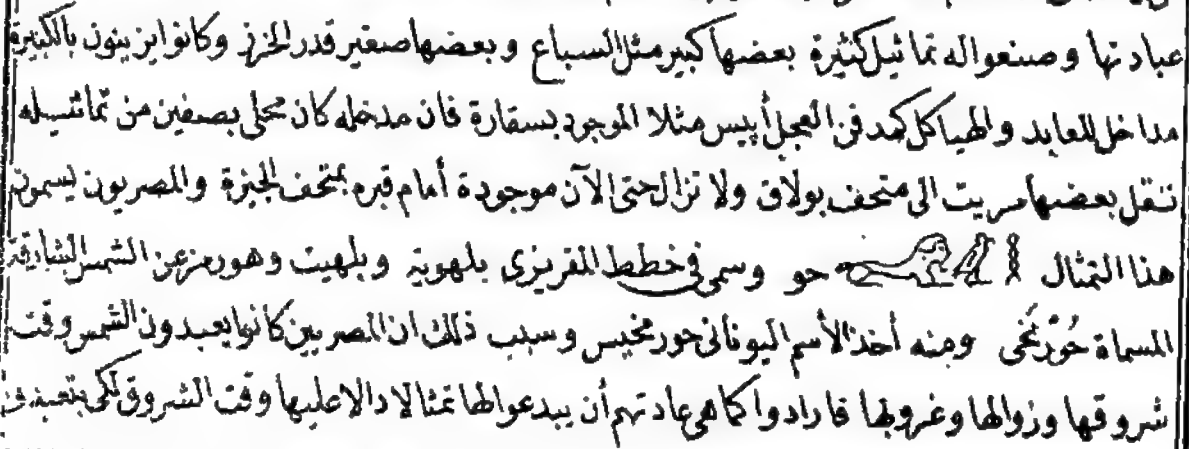 عبادتها وصنعوا له تماثيل كثيرة بعضها كبير مثل السباع وبعضها صغير قدر الخرز وكانوا يزينون بالكبيرة
مداخل المعابد والهياكل كمدفن العجل أبيس مثلا الموجود بسقارة فان مدخله كان محلى بصفين من تماثيله
نقل بعضها مريت الى متحف بولاق ولا تزال حتى الآن موجودة أمام قبره بمتحف الجيزة والمصريون يسمون
هذا التمثال حو وسمى في خطط المقريزى بلهوية وبلهيت وهو رمز عن الشمس الشارقة
المسماة ومنه أخذ الأسم اليونانى حور مخيس وسبب ذلك ان المصريين كانوا يعبدون الشمس وقت
شروقها وزوالها وغروبها فارادوا كما هى عادتهم أن يبدعوا لها تمثالا دالا عليها وقت الشروق لكى